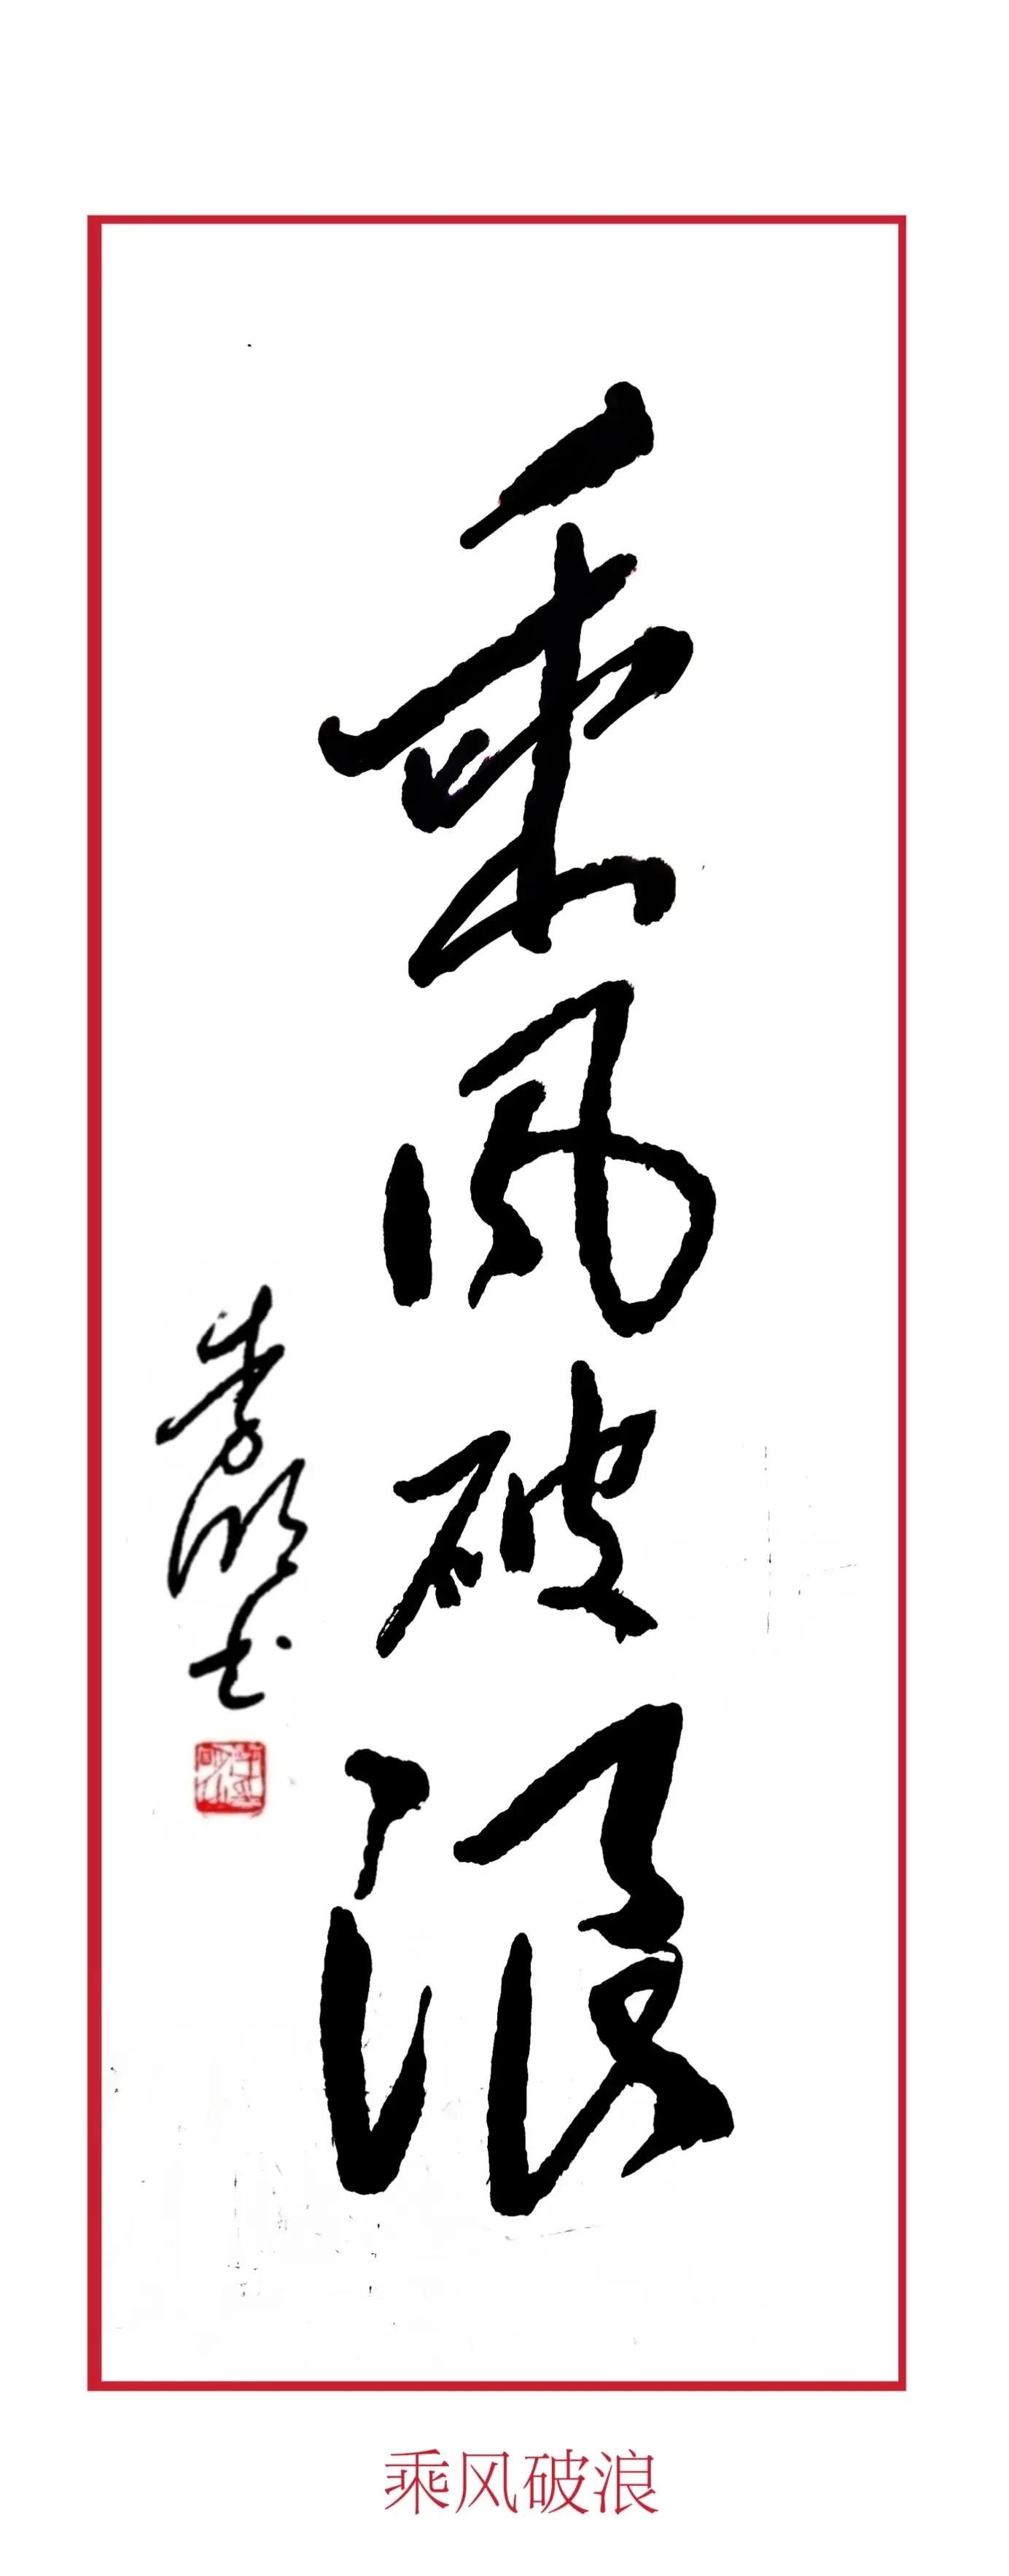 乘风破浪
乘风破浪